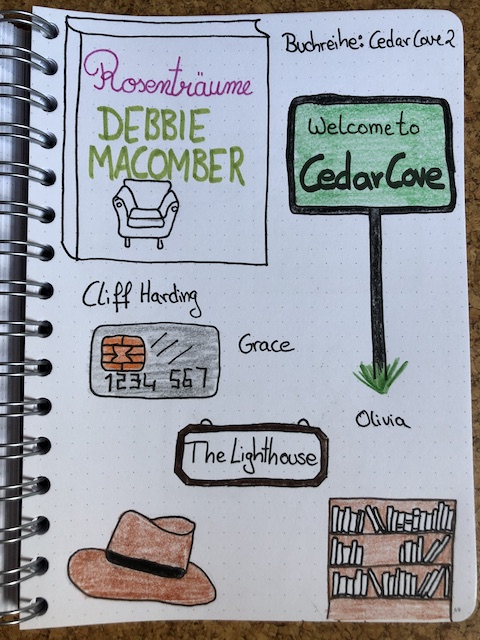 Buchreihe: Cedar Cove 2
Rosenträume
DEBBIE
MACOMBER
Welcome to
Cedar Cove
Cliff Harding
Grace
1234 567
Olivia
The Lighthouse